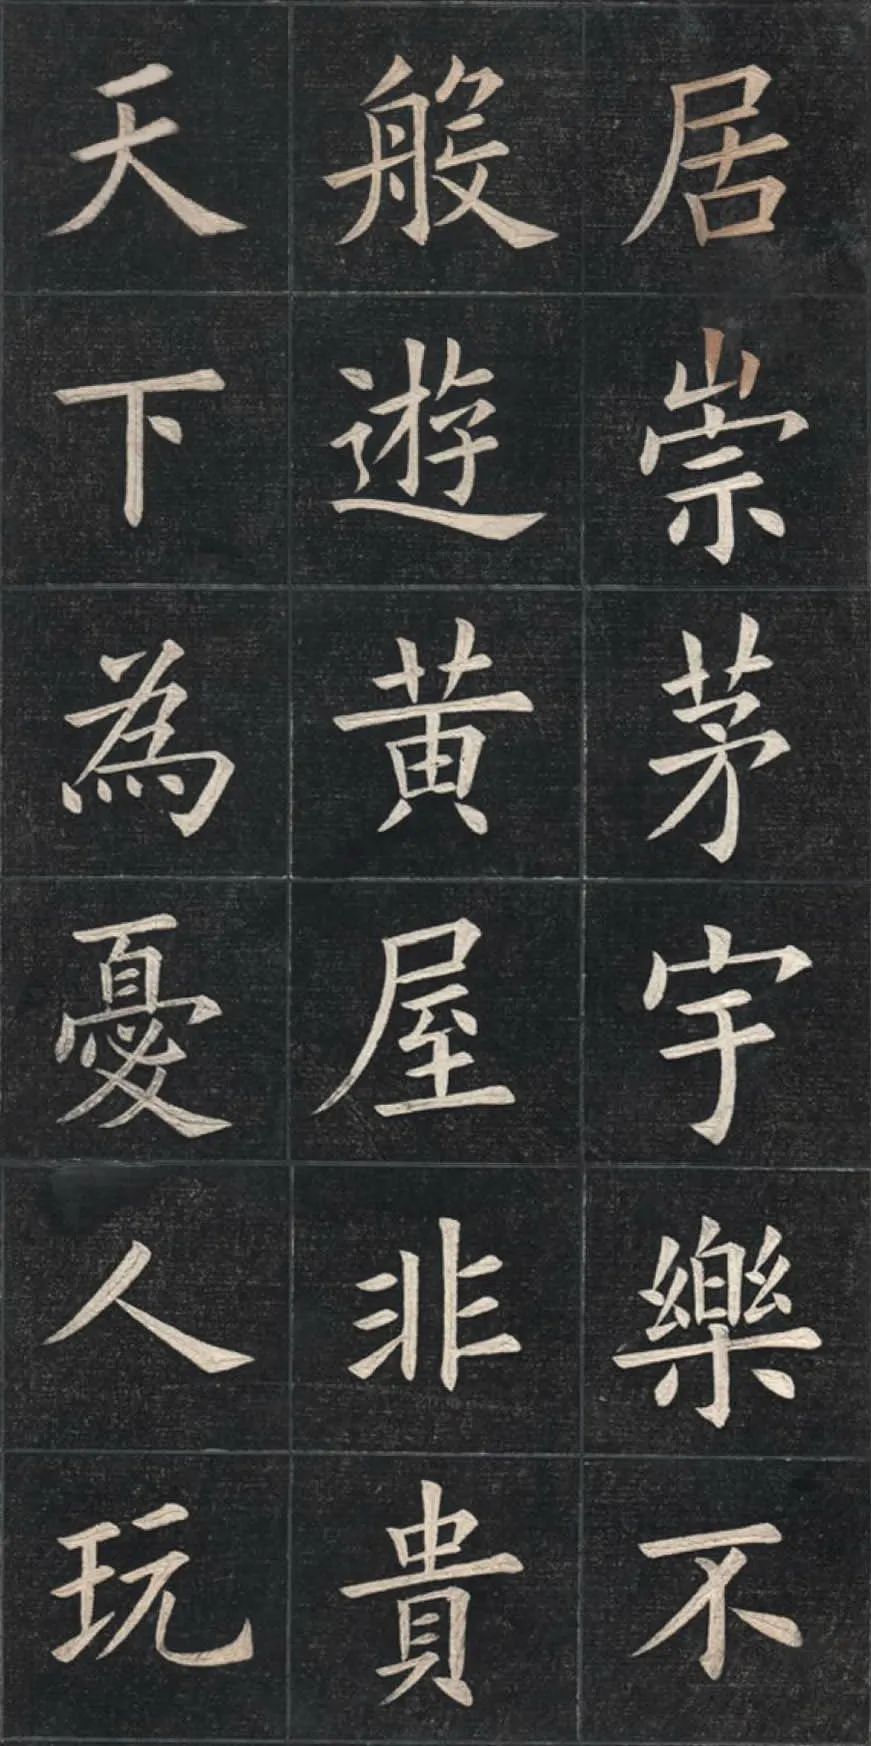 居崇茅宇樂不
般遊黄屋非貴
天下為憂人玩